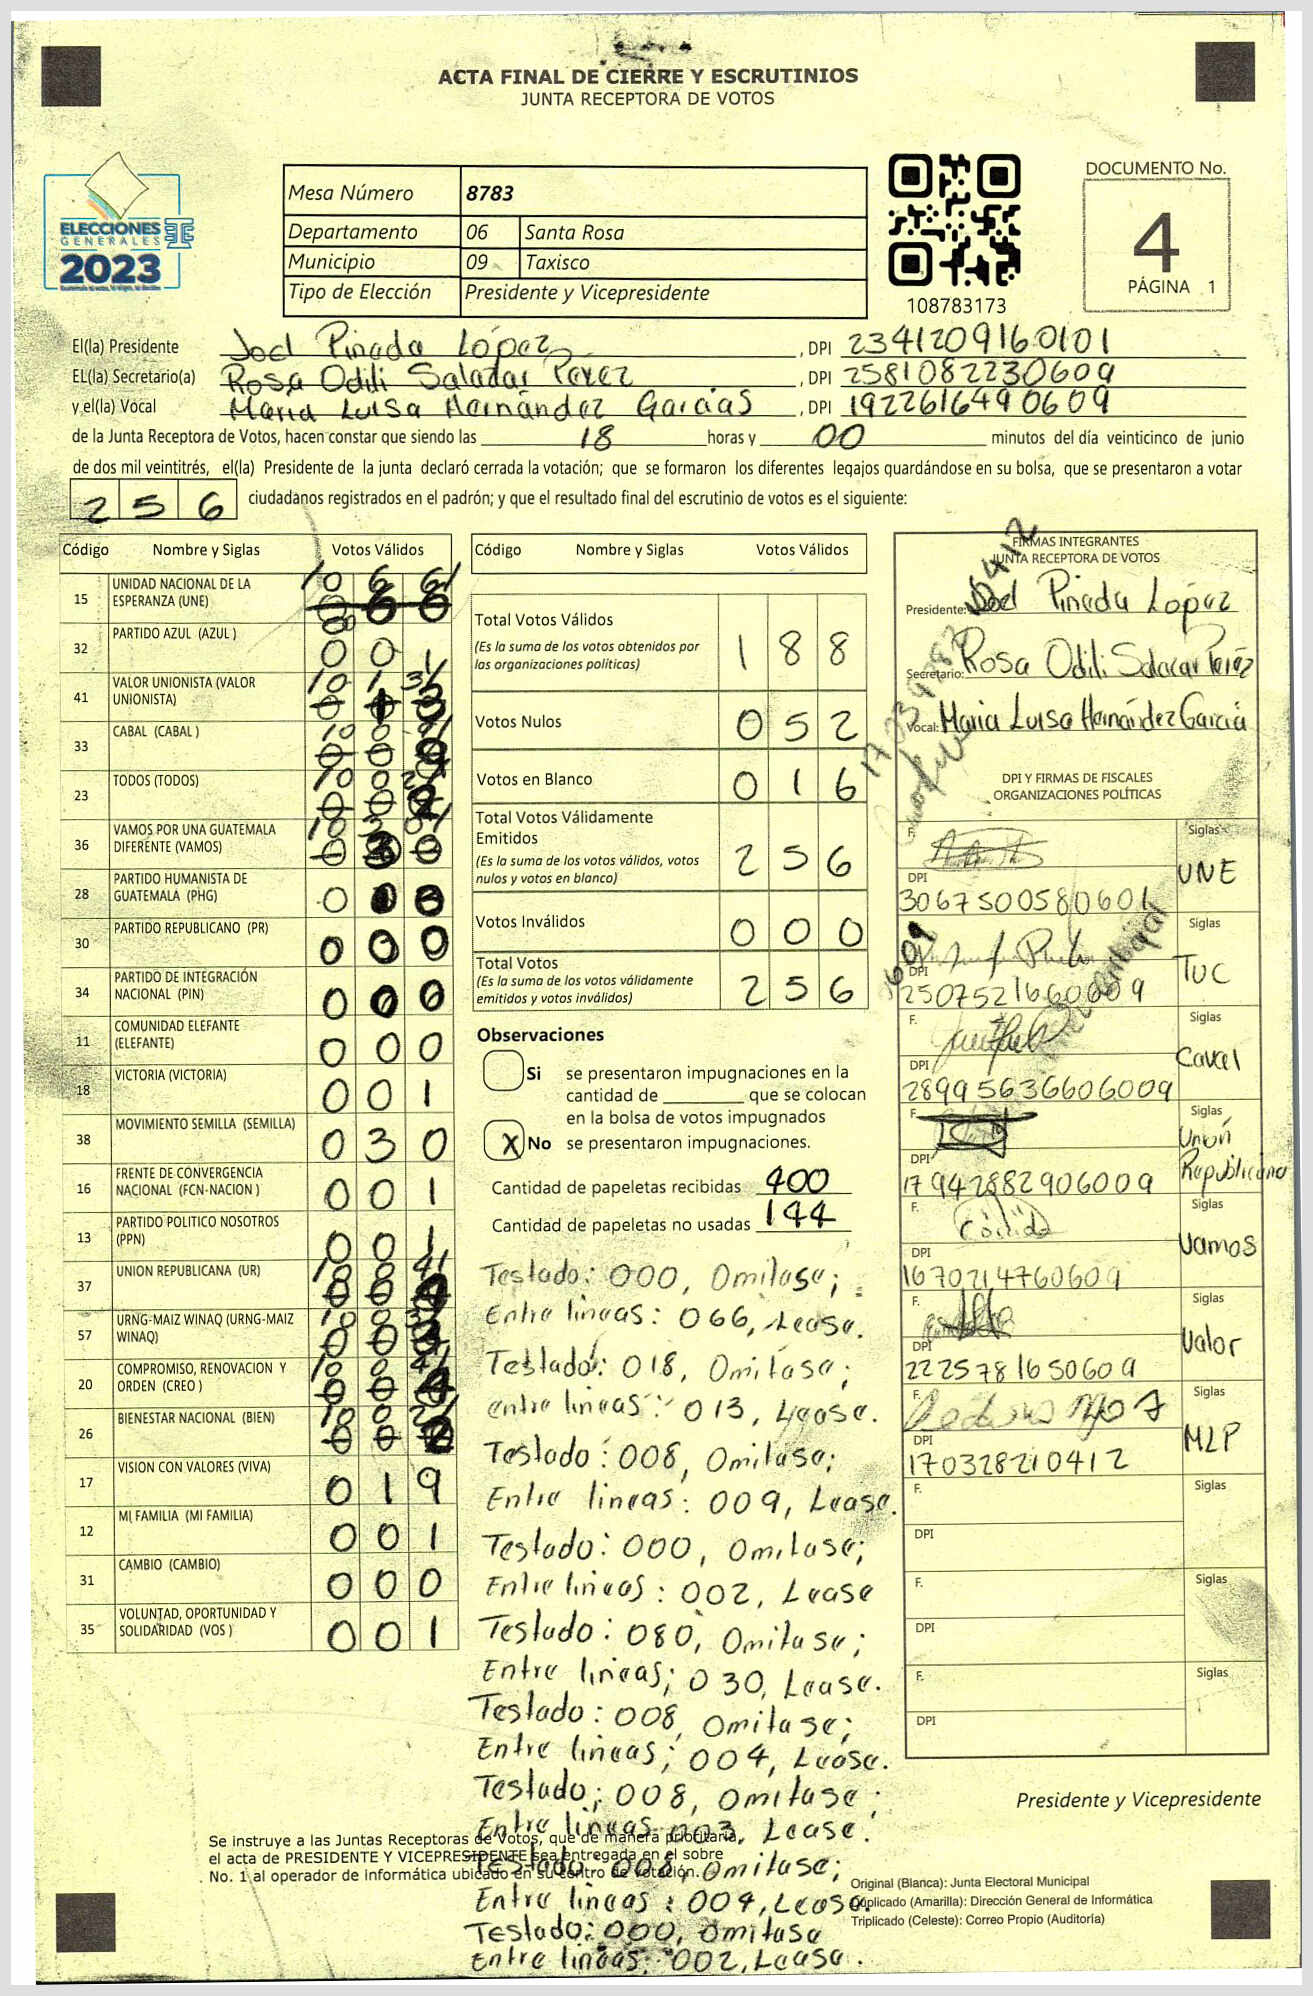 ACTA FINAL DE CIERRE Y ESCRUTINIOS
JUNTA RECEPTORA DE VOTOS
ELECCIONES
GENERALES
2023
Mesa Número 8783
Departamento 06 Santa Rosa
Municipio 09 Taxisco
Tipo de Elección Presidente y Vicepresidente
108783173
DOCUMENTO No.
4
PÁGINA 1
El(la) Presidente Joel Pineda López, DPI 2341209160101
EL(la) Secretario(a) Rosa Odili Salazar Perez, DPI 2581082230609
y el(la) Vocal Maria Luisa Hernández Garcias, DPI 1922616490609
de la Junta Receptora de Votos, hacen constar que siendo las 18 horas y 00 minutos del día veinticinco de junio
de dos mil veintitrés, el(la) Presidente de la junta declaró cerrada la votación; que se formaron los diferentes legajos guardándose en su bolsa, que se presentaron a votar
256 ciudadanos registrados en el padrón; y que el resultado final del escrutinio de votos es el siguiente:
Código Nombre y Siglas Votos Válidos
15 UNIDAD NACIONAL DE LA ESPERANZA (UNE) 066
32 PARTIDO AZUL (AZUL ) 001
41 VALOR UNIONISTA (VALOR UNIONISTA) 013
33 CABAL (CABAL ) 009
23 TODOS (TODOS) 002
36 VAMOS POR UNA GUATEMALA DIFERENTE (VAMOS) 030
28 PARTIDO HUMANISTA DE GUATEMALA (PHG)
30 PARTIDO REPUBLICANO (PR) 000
34 PARTIDO DE INTEGRACIÓN NACIONAL (PIN) 000
11 COMUNIDAD ELEFANTE (ELEFANTE) 000
18 VICTORIA (VICTORIA) 001
38 MOVIMIENTO SEMILLA (SEMILLA) 030
16 FRENTE DE CONVERGENCIA NACIONAL (FCN-NACION ) 001
13 PARTIDO POLITICO NOSOTROS (PPN) 001
37 UNION REPUBLICANA (UR) 004
57 URNG-MAIZ WINAQ (URNG-MAIZ WINAQ) 003
20 COMPROMISO, RENOVACION Y ORDEN (CREO ) 004
26 BIENESTAR NACIONAL (BIEN) 002
17 VISION CON VALORES (VIVA) 019
12 MI FAMILIA (MI FAMILIA) 001
31 CAMBIO (CAMBIO) 000
35 VOLUNTAD, OPORTUNIDAD Y SOLIDARIDAD (VOS ) 001
Código Nombre y Siglas Votos Válidos
Total Votos Válidos 188
(Es la suma de los votos obtenidos por
las organizaciones políticas)
Votos Nulos 052
Votos en Blanco 016
Total Votos Válidamente
Emitidos 256
(Es la suma de los votos válidos, votos
nulos y votos en blanco)
Votos Inválidos 000
Total Votos
(Es la suma de los votos válidamente
emitidos y votos inválidos) 256
Observaciones
Si se presentaron impugnaciones en la
cantidad de ________ que se colocan
en la bolsa de votos impugnados
X No se presentaron impugnaciones.
Cantidad de papeletas recibidas 400
Cantidad de papeletas no usadas 144
Testado: 000, Omitase;
Entre lineas: 066, Lease.
Testado: 018, Omitase;
entre lineas: 013, Lease.
Testado: 008, Omitase;
Entre lineas: 009, Lease.
Testado: 000, Omitase;
Entre lineas: 002, Lease
Testado: 080, Omitase;
Entre lineas; 030, Lease.
Testado: 008, Omitase;
Entre lineas; 004, Lease.
Testado; 008, Omitase;
Entre lineas 003, Lease.
Testado: 008, Omitase;
Entre lineas: 004, Lease.
Testado: 000, Omitase
Entre lineas: 002, Lease.
FIRMAS INTEGRANTES
JUNTA RECEPTORA DE VOTOS
Presidente: Joel Pineda López
Secretario: Rosa Odili Salazar Peréz
Vocal: Maria Luisa Hernández Garcia
DPI Y FIRMAS DE FISCALES
ORGANIZACIONES POLÍTICAS
F. Siglas UNE
DPI 3067500580601
Siglas TUC
DPI 2507521660609
F. Siglas Caval
DPI 28995636606009
F. Siglas Unión Republicana
DPI 1794288290600 9
F. Siglas Vamos
DPI 1670214760609
F. Siglas Valor
DPI 2225781650609
F. Siglas MLP
DPI 170328210412
F. Siglas
DPI
F. Siglas
DPI
F. Siglas
DPI
Presidente y Vicepresidente
Se instruye a las Juntas Receptoras de Votos, que de manera prioritaria,
el acta de PRESIDENTE Y VICEPRESIDENTE sea entregada en el sobre
No. 1 al operador de informática ubicado en su centro de votación.
Original (Blanca): Junta Electoral Municipal
Duplicado (Amarilla): Dirección General de Informática
Triplicado (Celeste): Correo Propio (Auditoría)